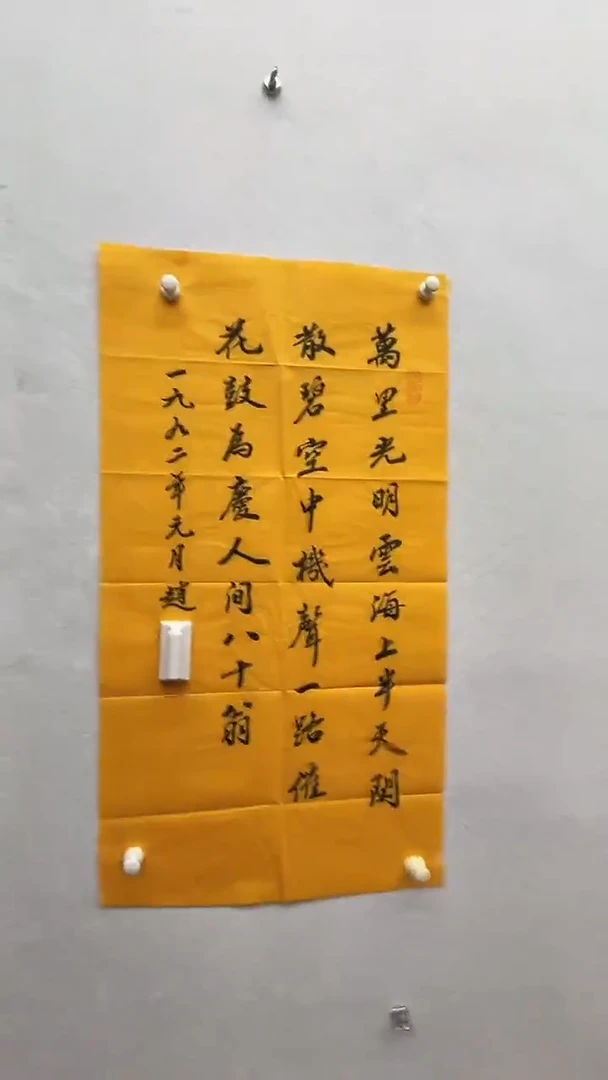 萬里光明雲海上半天陰
散碧空中機聲一路催
花鼓為慶人间八十翁
一九九二年元月趙